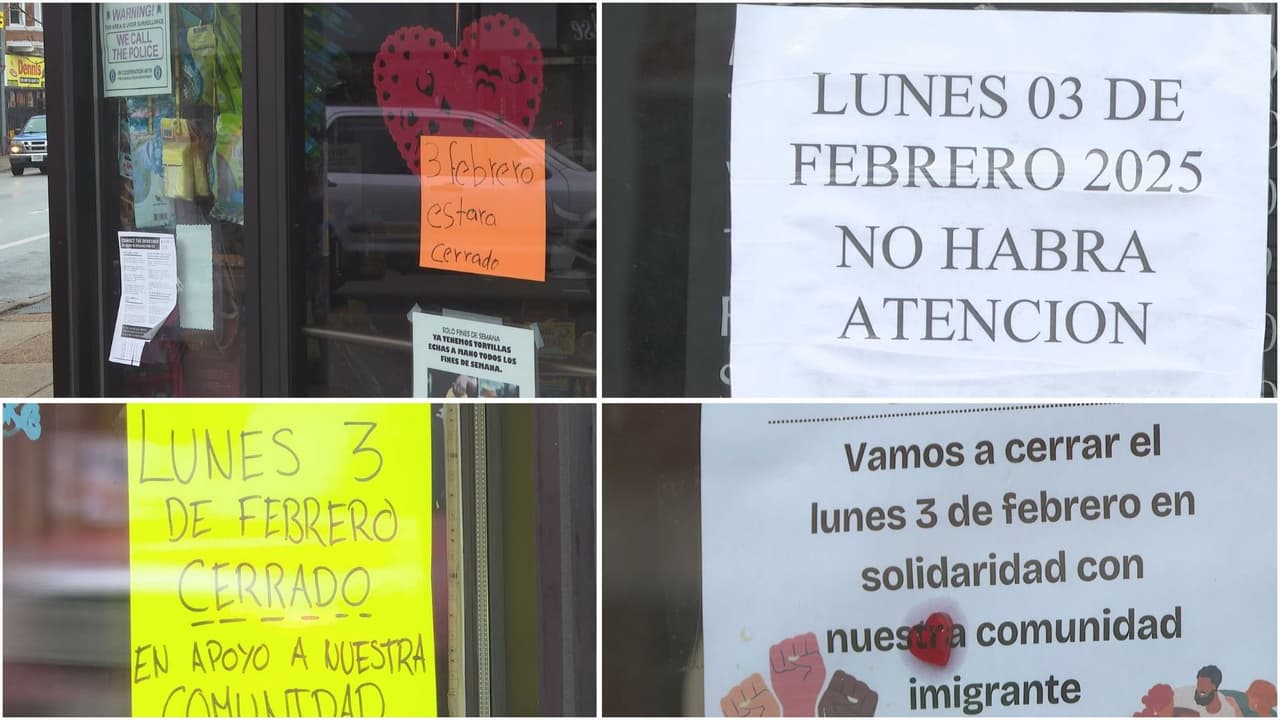 WARNING!
WE CALL
THE POLICE
Dennis
3 febrero
estara
cerrado
SOLO FINES DE SEMANA
YA TENEMOS TORTILLAS
ECHAS A MANO TODOS LOS
FINES DE SEMANA.
LUNES 03 DE
FEBRERO 2025
NO HABRA
ATENCION
LUNES 3
DE FEBRERO
CERRADO
EN APOYO A NUESTRA
COMUNIDAD
Vamos a cerrar el
lunes 3 de febrero en
solidaridad con
nuestra comunidad
imigrante